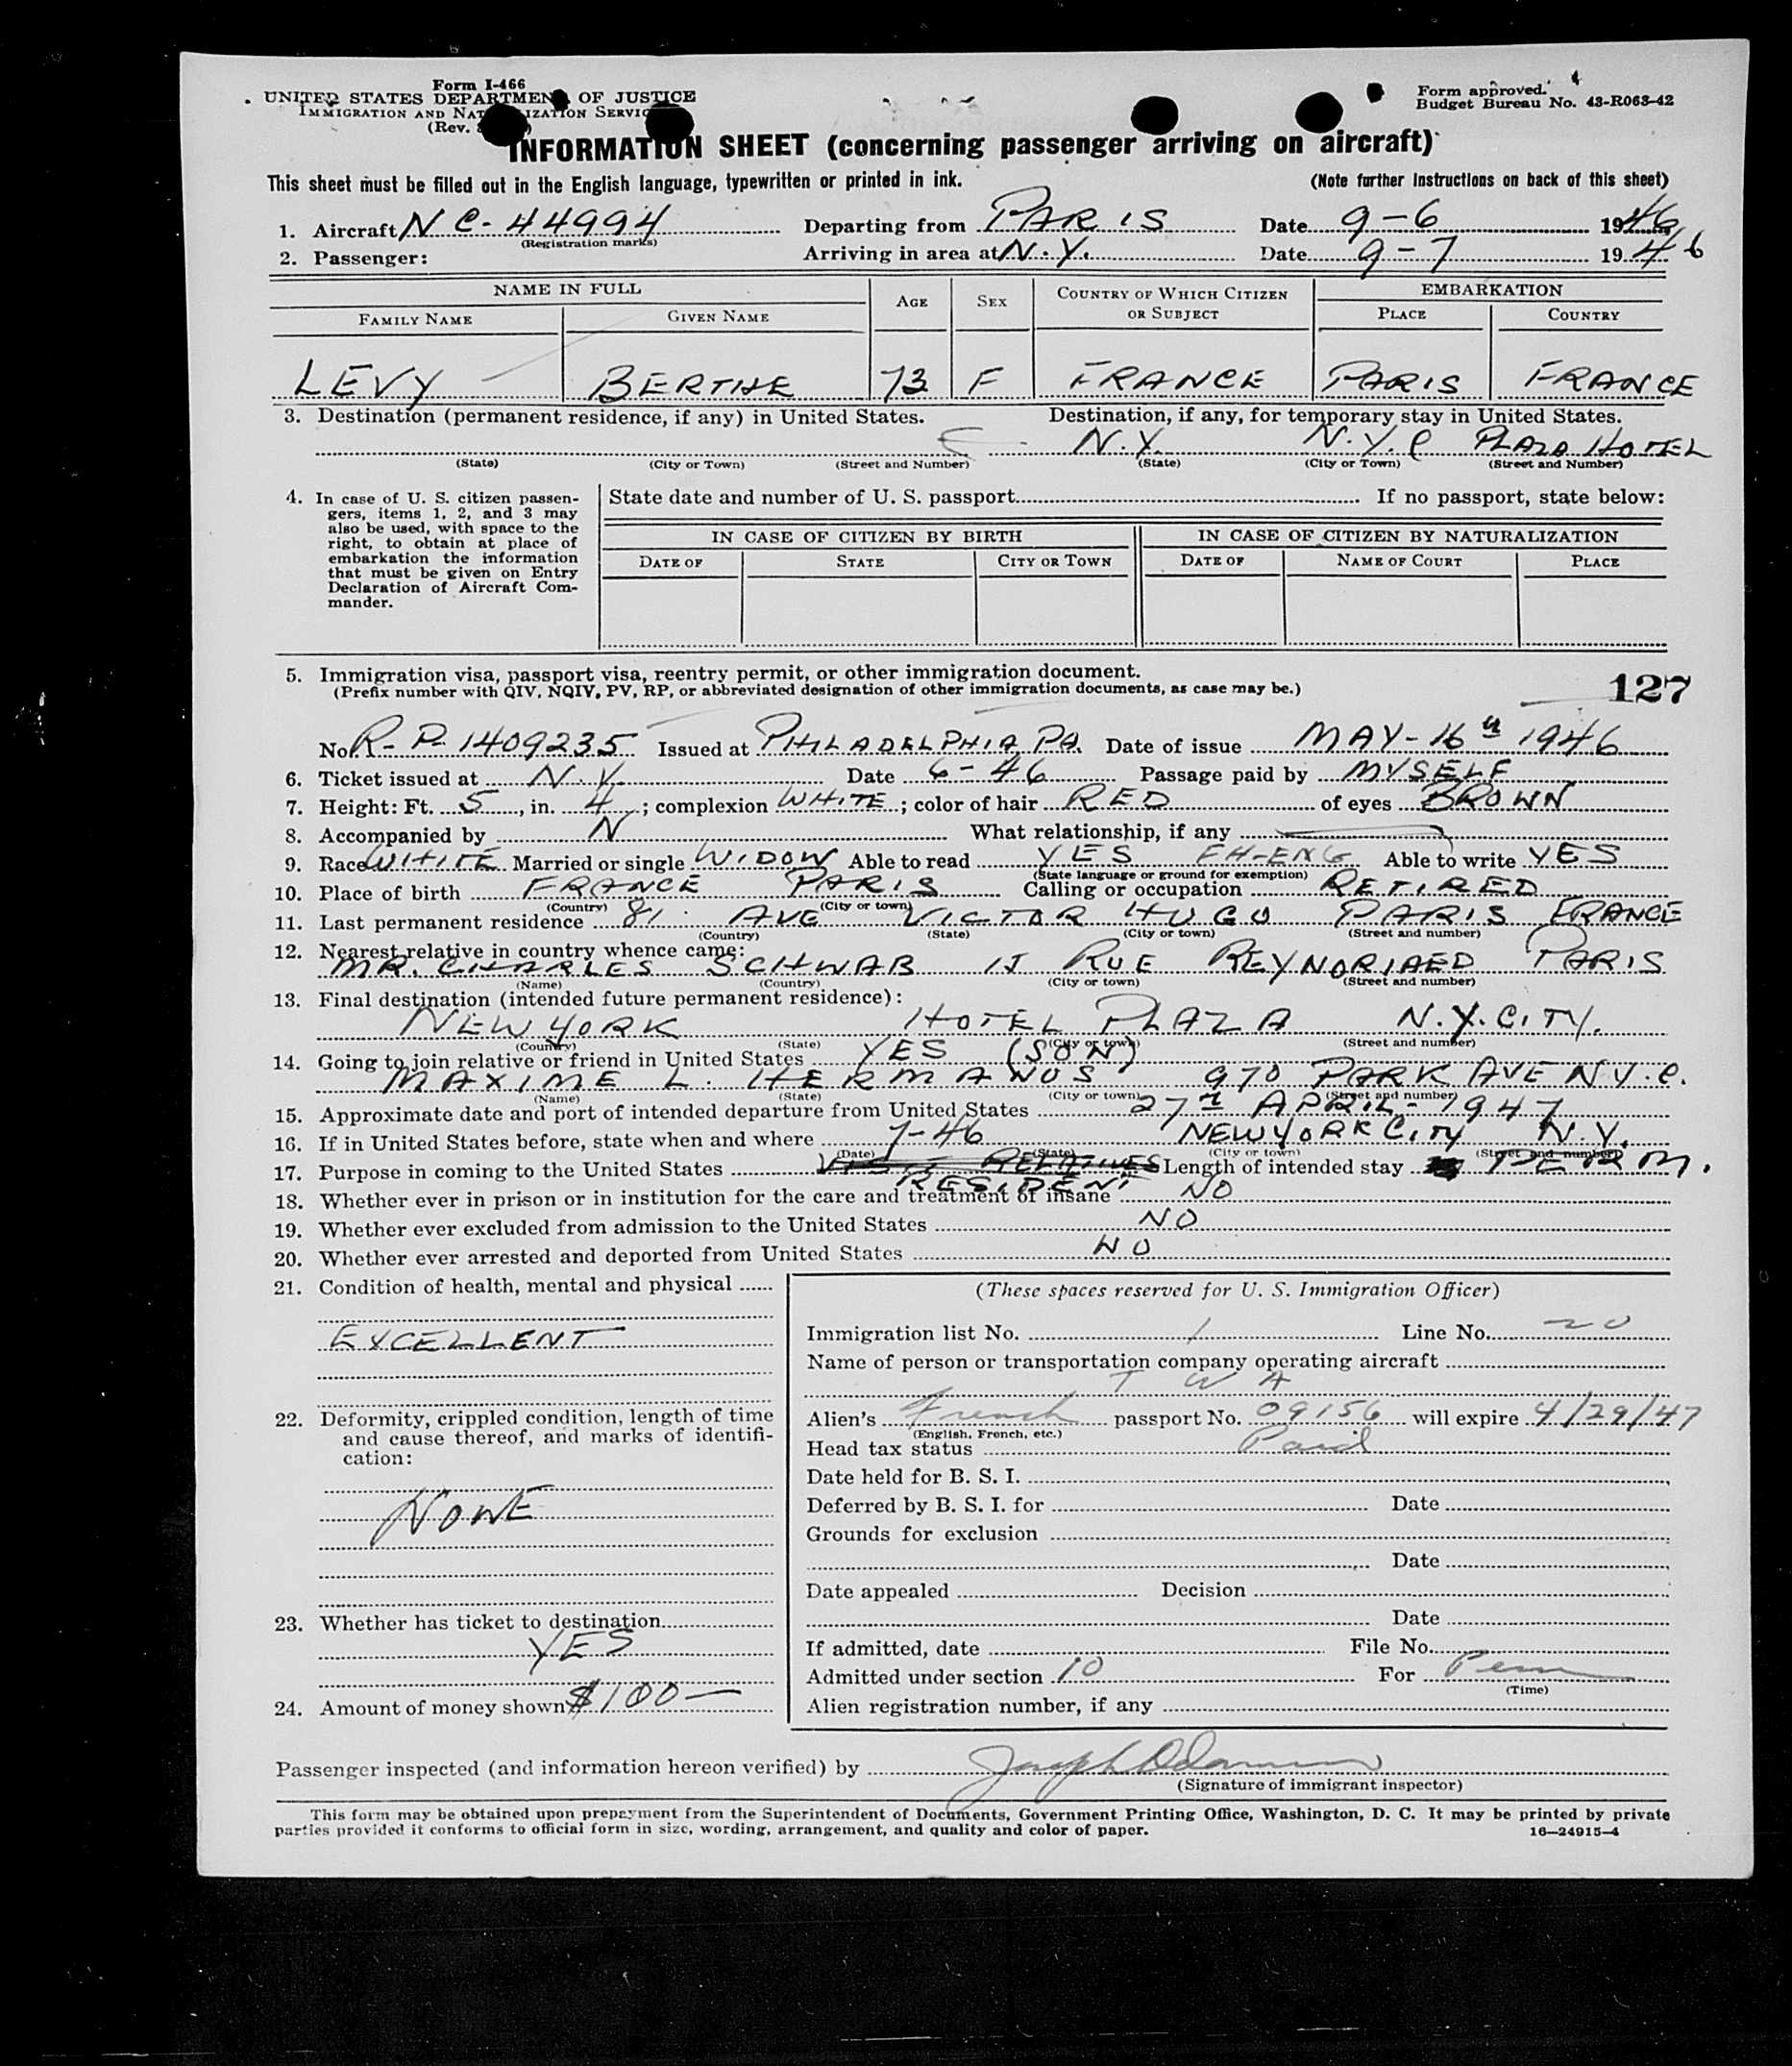 Form I-466
UNITED STATES DEPARTMENT OF JUSTICE
IMMIGRATION AND NATURALIZATION SERVICE
(Rev.
Form approved.
Budget Bureau No. 43-R063-42
INFORMATION SHEET (concerning passenger arriving on aircraft)
This sheet must be filled out in the English language, typewritten or printed in ink. (Note further instructions on back of this sheet)
1. Aircraft NC-44994 Departing from PARIS Date 9-6 1946
(Registration marks)
2. Passenger: Arriving in area at N.Y. Date 9-7 1946
NAME IN FULL AGE SEX COUNTRY OF WHICH CITIZEN OR SUBJECT EMBARKATION
FAMILY NAME GIVEN NAME PLACE COUNTRY
LEVY BERTHE 73 F FRANCE PARIS FRANCE
3. Destination (permanent residence, if any) in United States. Destination, if any, for temporary stay in United States.
N.Y. N.Y.C PLAZA HOTEL
(State) (City or Town) (Street and Number) (State) (City or Town) (Street and Number)
4. In case of U. S. citizen passen-
gers, items 1, 2, and 3 may
also be used, with space to the
right, to obtain at place of
embarkation the information
that must be given on Entry
Declaration of Aircraft Com-
mander.
State date and number of U. S. passport If no passport, state below:
IN CASE OF CITIZEN BY BIRTH IN CASE OF CITIZEN BY NATURALIZATION
DATE OF STATE CITY OR TOWN DATE OF NAME OF COURT PLACE
5. Immigration visa, passport visa, reentry permit, or other immigration document.
(Prefix number with QIV, NQIV, PV, RP, or abbreviated designation of other immigration documents, as case may be.)
127
No. R-P-1409235 Issued at PHILADELPHIA PA. Date of issue MAY-16 1946
6. Ticket issued at N.Y. Date 6-46 Passage paid by MYSELF
7. Height: Ft. 5, in. 4; complexion WHITE; color of hair RED of eyes BROWN
8. Accompanied by N What relationship, if any
9. Race WHITE Married or single WIDOW Able to read YES FH-ENG Able to write YES
(State language or ground for exemption)
10. Place of birth FRANCE PARIS Calling or occupation RETIRED
(Country) (City or town)
11. Last permanent residence 81. AVE VICTOR HUGO PARIS FRANCE
(Country) (State) (City or town) (Street and number)
12. Nearest relative in country whence came:
MR. CHARLES SCHWAB RUE PARIS
(Name) (Country) (City or town) (Street and number)
13. Final destination (intended future permanent residence):
NEW YORK HOTEL PLAZA N.Y. CITY.
(Country) (State) (City or town) (Street and number)
14. Going to join relative or friend in United States YES (SON)
MAXIME L. HERMANOS 970 PARK AVE N.Y.C.
(Name) (State) (City or town) (Street and number)
15. Approximate date and port of intended departure from United States 27 APRIL-1947
16. If in United States before, state when and where 7-46 NEW YORK CITY N.Y.
(Date) (State) (City or town) (Street and number)
17. Purpose in coming to the United States VISIT RELATIVES Length of intended stay PERM.
RESIDENT
18. Whether ever in prison or in institution for the care and treatment of insane NO
19. Whether ever excluded from admission to the United States NO
20. Whether ever arrested and deported from United States NO
21. Condition of health, mental and physical
EXCELLENT
22. Deformity, crippled condition, length of time
and cause thereof, and marks of identifi-
cation:
NONE
23. Whether has ticket to destination
YES
24. Amount of money shown $100—
(These spaces reserved for U. S. Immigration Officer)
Immigration list No. 1 Line No. 20
Name of person or transportation company operating aircraft
T W A
Alien's French passport No. 09156 will expire 4/29/47
(English, French, etc.)
Head tax status Paid
Date held for B. S. I.
Deferred by B. S. I. for Date
Grounds for exclusion
Date
Date appealed Decision
Date
If admitted, date File No.
Admitted under section 10 For Perm
(Time)
Alien registration number, if any
Passenger inspected (and information hereon verified) by
(Signature of immigrant inspector)
This form may be obtained upon prepayment from the Superintendent of Documents, Government Printing Office, Washington, D. C. It may be printed by private
parties provided it conforms to official form in size, wording, arrangement, and quality and color of paper. 16—24915-4